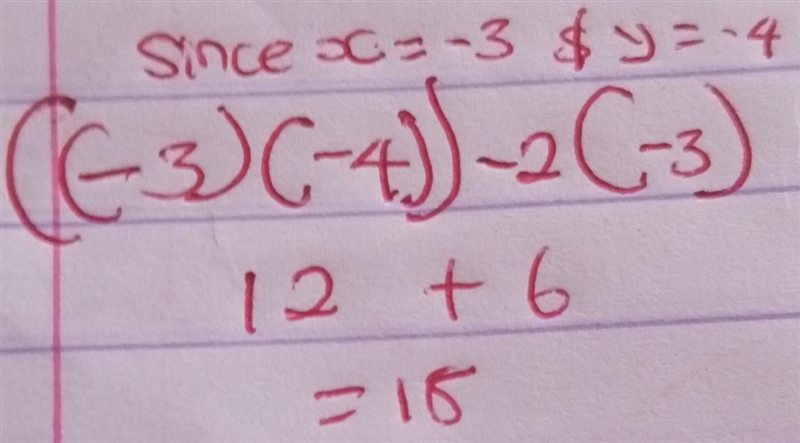 Since x = -3 $ y = -4
((-3)(-4)) -2(-3)
12 + 6
= 18